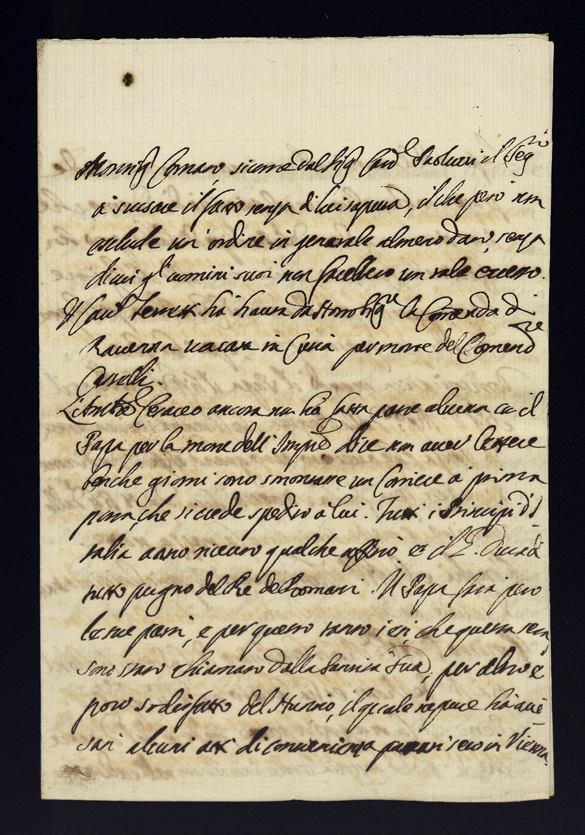 Monsig.r Cornaro si come dal Sig. Card. Paolucci il Seg.rio
à scusare il fatto senza di lui saputa, il che però non
esclude un' ordine in generale almeno dato, senza
di cui gl' uomini suoi non farebbero un tale eccesso.
Il Card. ha havuta da Nostro Sig.re la Comenda di
Ravenna vacata in Curia per morte del Comend.re
L'Amb.re Cesareo ancora non ha fatta parte alcuna con il
Papa per la morte dell' Imp.re dice non aver lettere
benche giorni sono smontare un Corriere à prima
porta, che si crede spedito à lui. Tutti i Principi d' I
talia anno ricevuto qualche offitio et il G. Duca di
tutto pugno del Re de Romani. Il Papa farà però
le sue parti, e per questo tanto i che questa sera
sono stato chiamato dalla Santità Sua, per altro è
poco sodisfatto del Nunzio, il quale neppure ha
alcuni atti di convenienza in Vienna